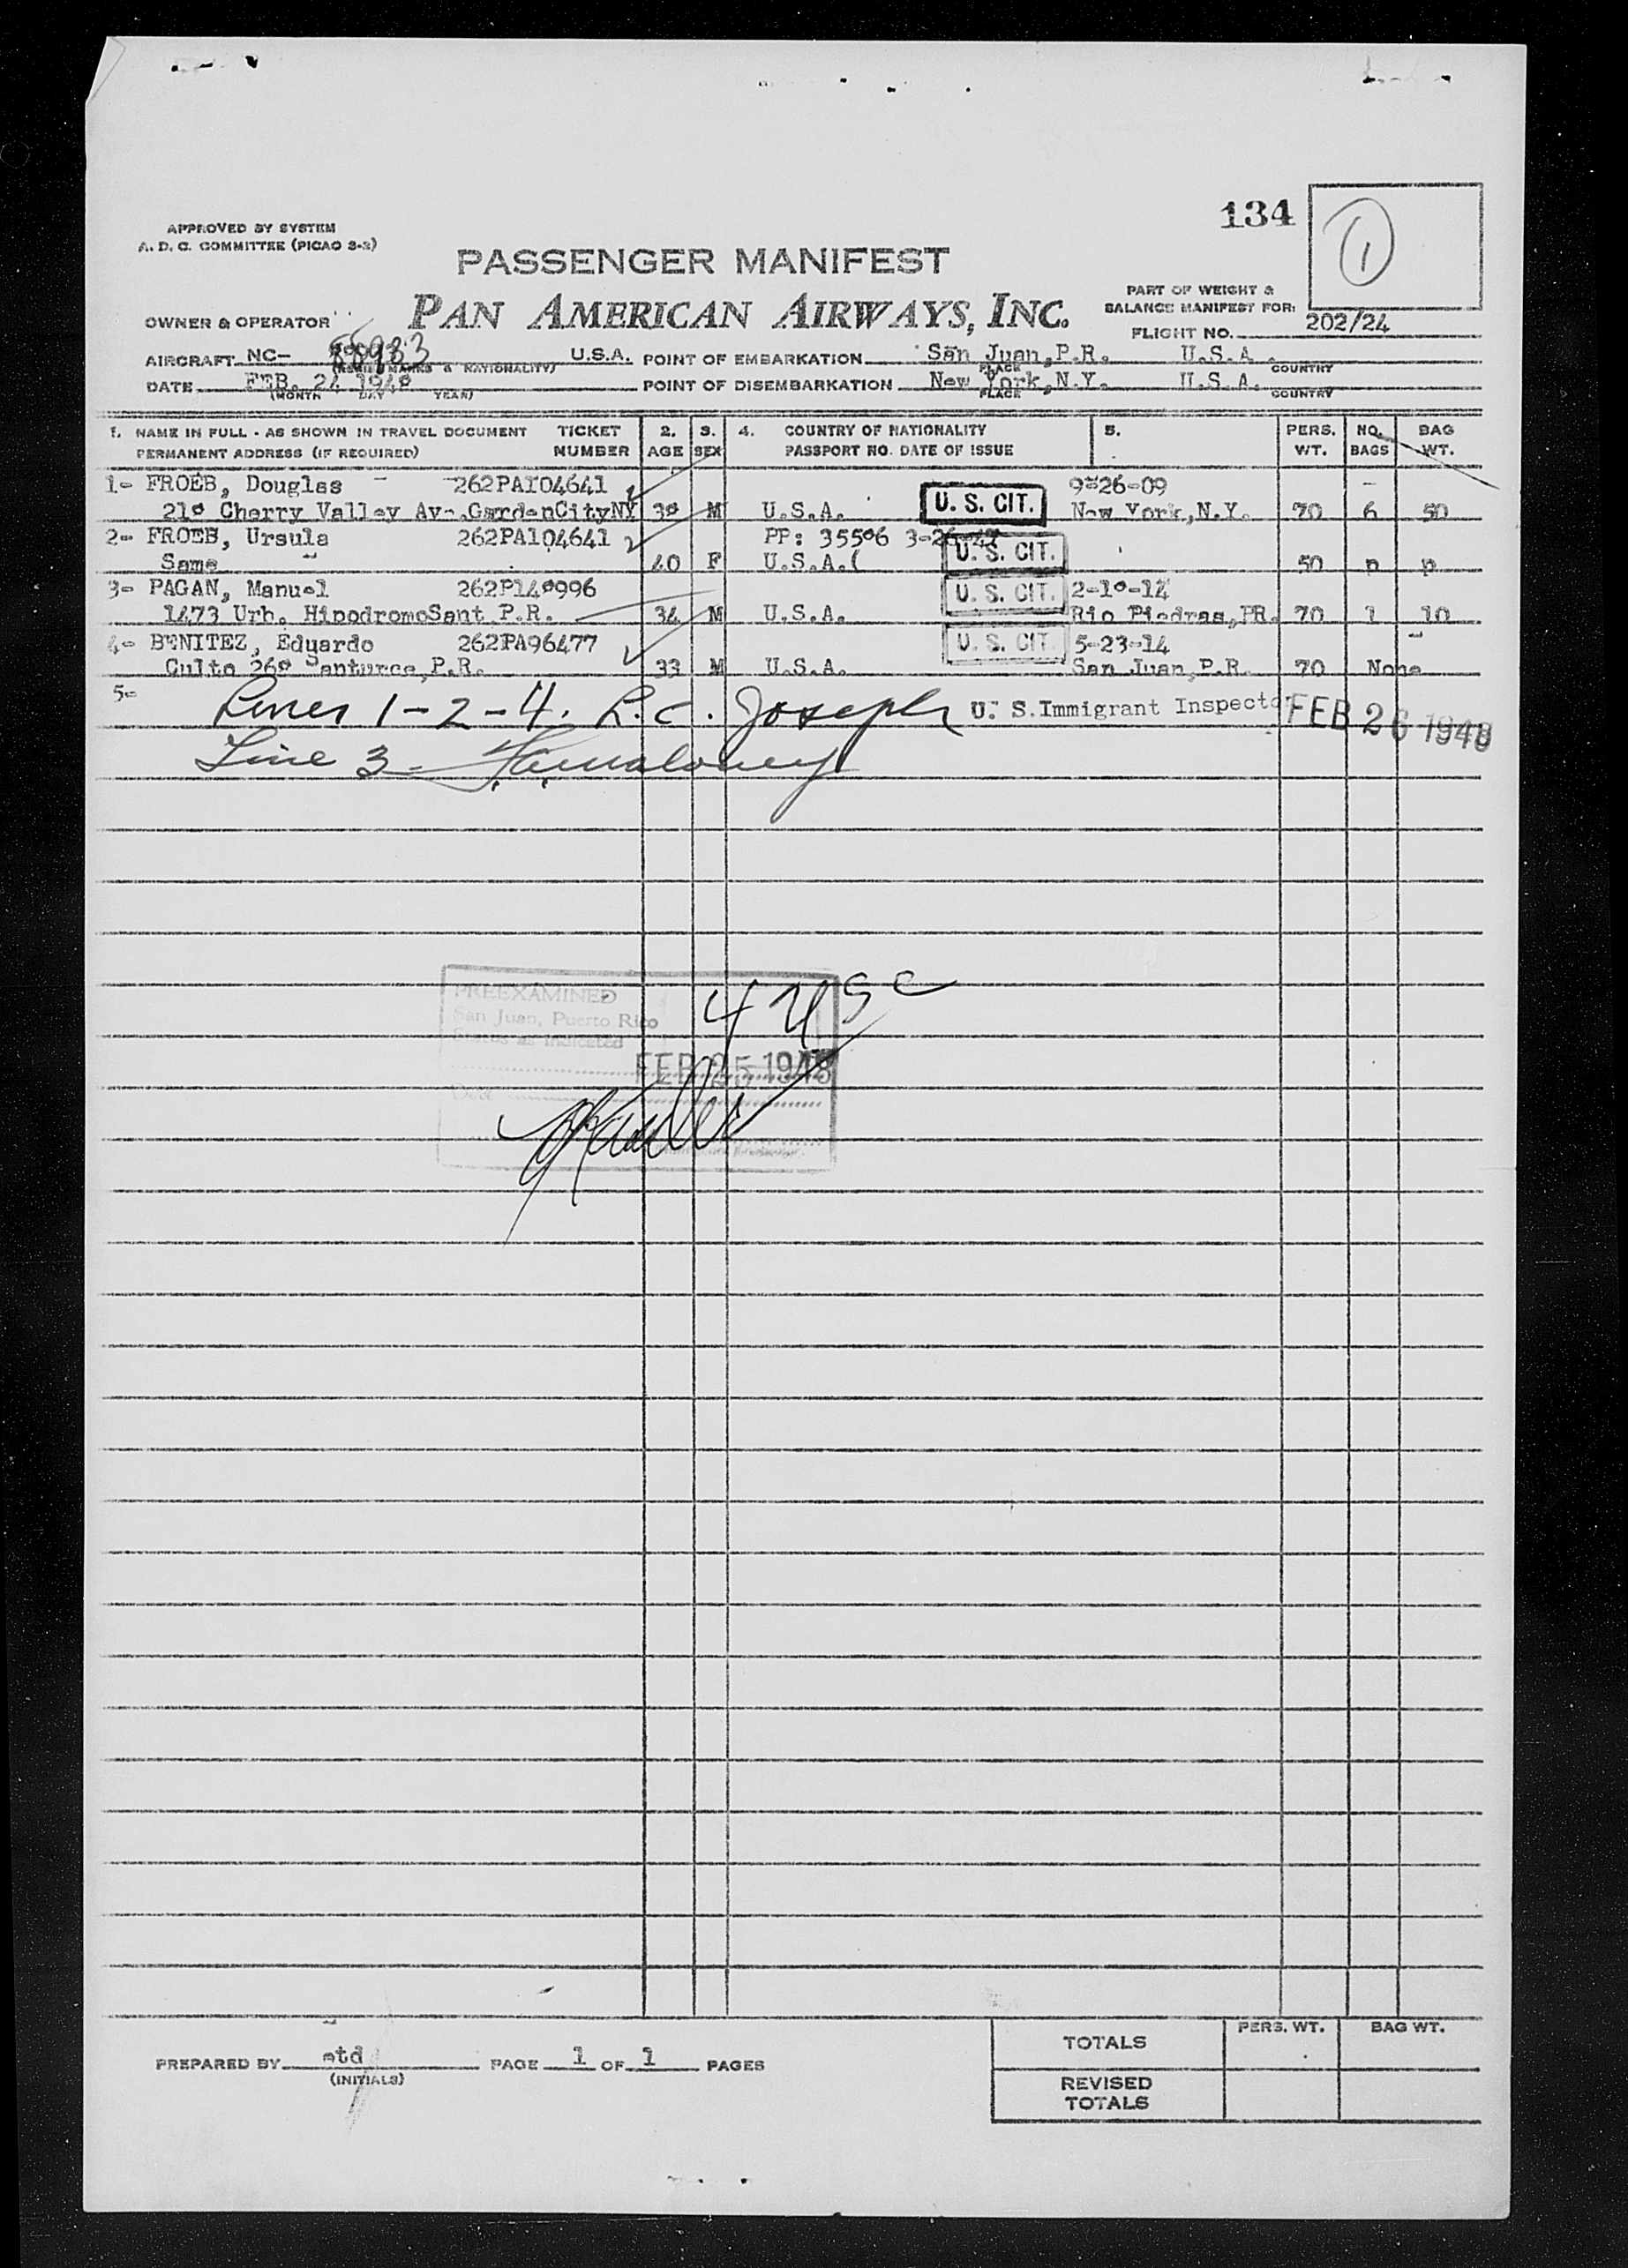 134
1
APPROVED BY SYSTEM
A. D. C. COMMITTEE (PICAO 3-2)
PASSENGER MANIFEST
PART OF WEIGHT &
BALANCE MANIFEST FOR:
OWNER & OPERATOR PAN AMERICAN AIRWAYS, INC.
FLIGHT NO. 202/24
AIRCRAFT NC- 88983 U.S.A. POINT OF EMBARKATION San Juan,P.R. U.S.A.
PLACE COUNTRY
DATE FEB. 24 1948 POINT OF DISEMBARKATION New York,N.Y. U.S.A.
(MONTH DAY YEAR) PLACE COUNTRY
1. NAME IN FULL - AS SHOWN IN TRAVEL DOCUMENT TICKET 2. 3. 4. COUNTRY OF NATIONALITY 5. PERS. NO. BAG
PERMANENT ADDRESS (IF REQUIRED) NUMBER AGE SEX PASSPORT NO. DATE OF ISSUE WT. BAGS WT.
1- FROEB, Douglas 262PA104641 9-26-09
Cherry Valley Av-.GardenCityNY M U.S.A. U. S. CIT. New York,N.Y. 70 6 50
2- FROEB, Ursula 262PA104641 PP:
Same 40 F U.S.A.( U. S. CIT. 50 p p
3- PAGAN, Manuel U. S. CIT.
1473 Urb. HipodromoSant P.R. 34 M U.S.A. Rio Piedras,PR. 70 1 10
4- BENITEZ, Eduardo 262PA96477 U. S. CIT. 5-23-14
Culto Santurce,P.R. 33 M U.S.A. San Juan,P.R. 70 None
5-
Lines 1-2-4. L.C. Joseph U. S.Immigrant Inspector FEB 26 1948
Line 3
PREEXAMINED
San Juan, Puerto Rico
Status as indicated
4 USC
FEB 25 1948
PREPARED BY etd PAGE 1 OF 1 PAGES
(INITIALS)
TOTALS PERS. WT. BAG WT.
REVISED
TOTALS